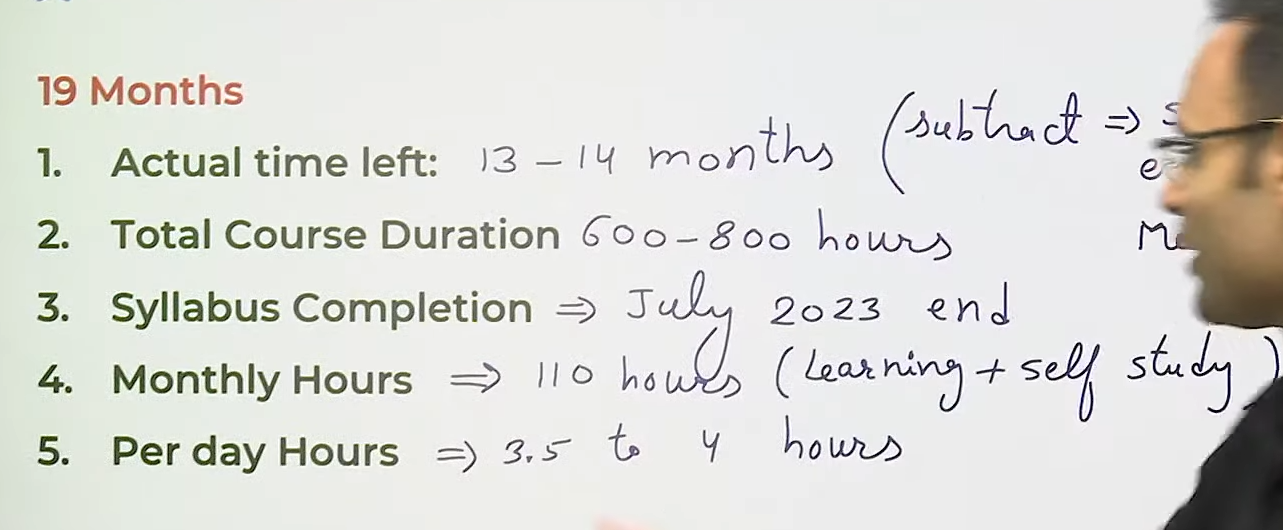 19 Months
1. Actual time left: 13 - 14 months (subtract ⇒
2. Total Course Duration 600 - 800 hours
3. Syllabus Completion ⇒ July 2023 end
4. Monthly Hours ⇒ 110 hours (Learning + self study)
5. Per day Hours ⇒ 3.5 to 4 hours